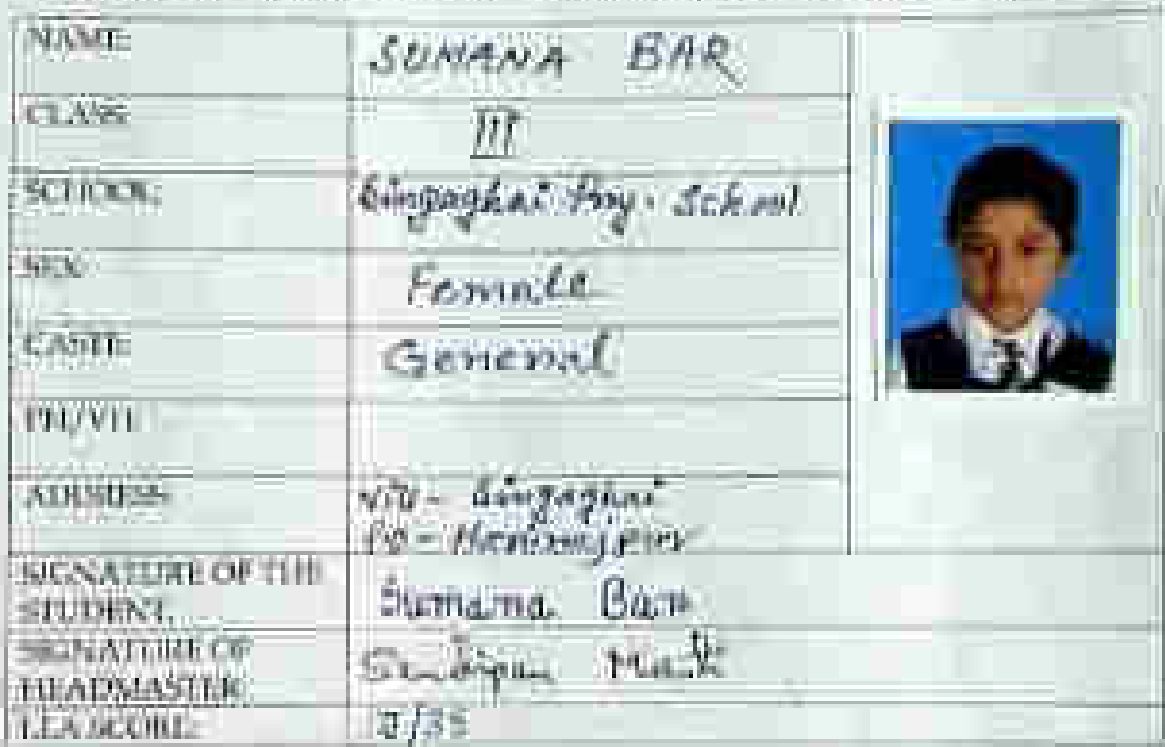 NAME: SUMANA BAR
CLASS: III
SCHOOL: Singaghai Pry. School
SEX: Female
CASTE: General
PH/VH:
ADDRESS: Vill - Singaghai
PO -
SIGNATURE OF THE STUDENT: Sumana Bar
SIGNATURE OF HEADMASTER: Sandipan
LEA SCORE: /35